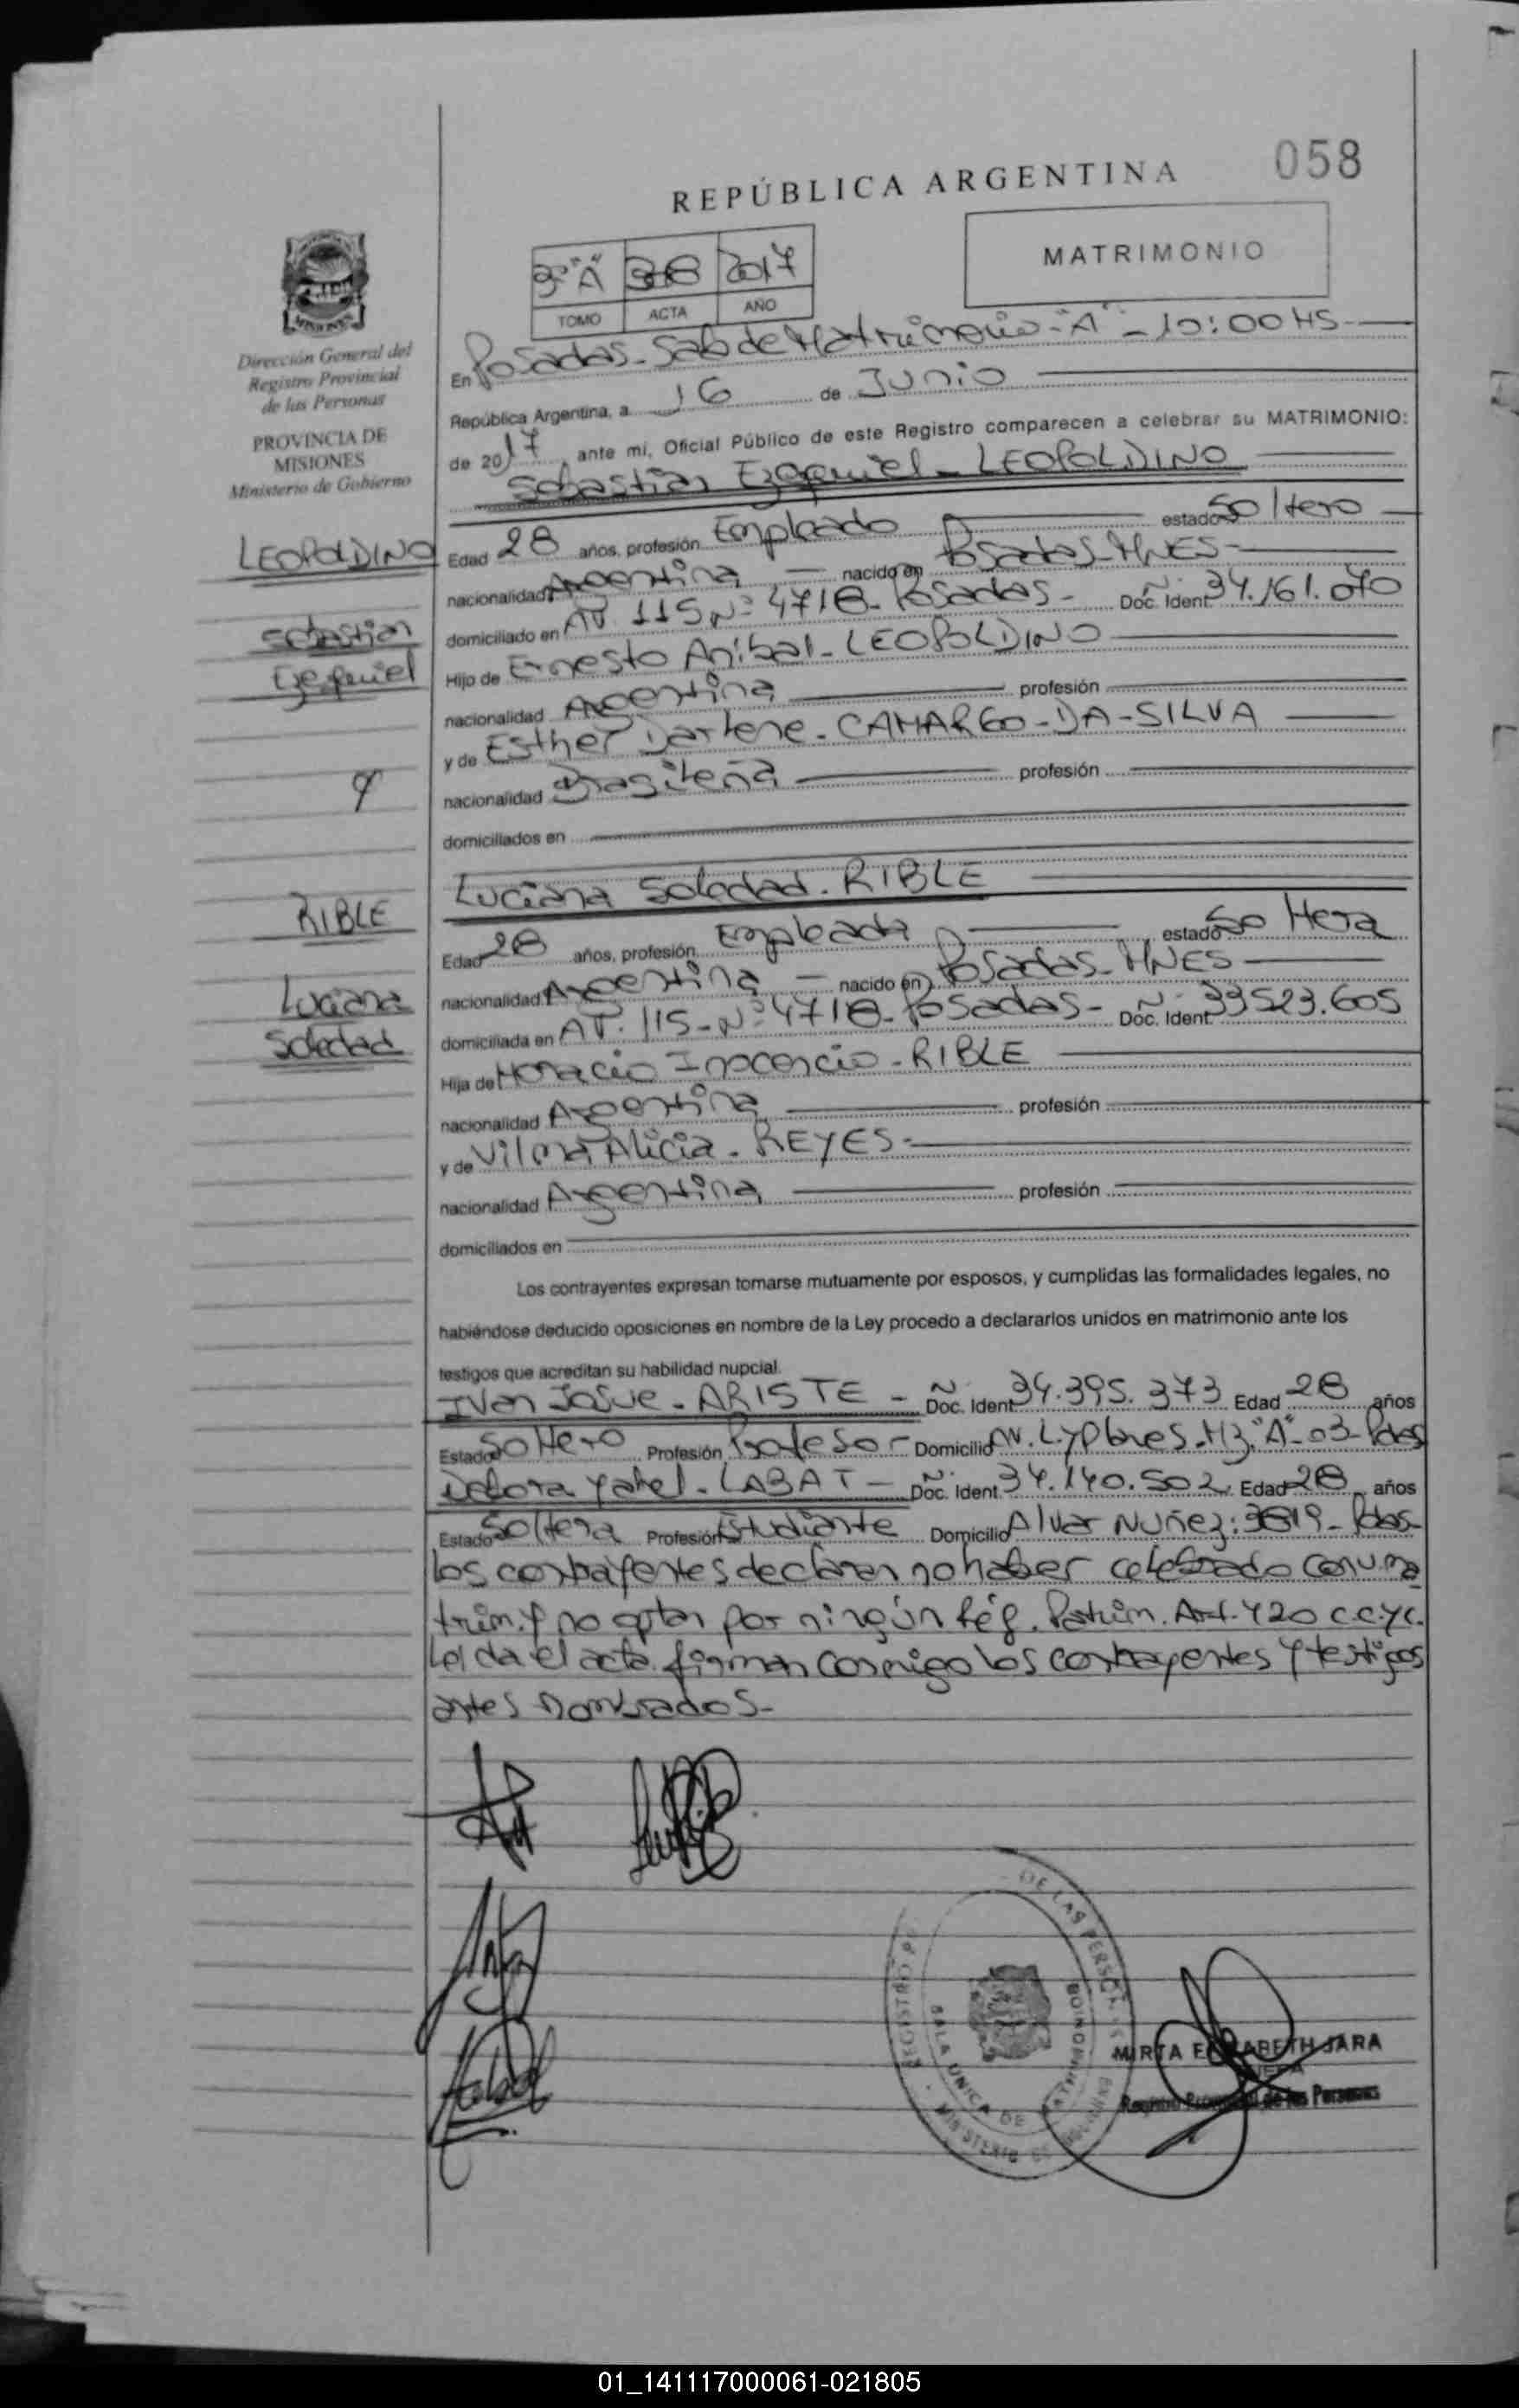 058
REPÚBLICA ARGENTINA
MATRIMONIO
3º "A" 2017
TOMO ACTA AÑO
Dirección General del
Registro Provincial
de las Personas
PROVINCIA DE
MISIONES
Ministerio de Gobierno
En Posadas - Sala de Matrimonio - "A" - 10:00 HS
República Argentina, a 16 de Junio
de 2017 ante mi, Oficial Público de este Registro comparecen a celebrar su MATRIMONIO:
Sebastián Ezequiel - LEOPOLDINO
LEOPOLDINO
Sebastián
Ezequiel
Y
RIBLE
Luciana
Soledad
Edad 28 años, profesión Empleado estado Soltero
nacionalidad Argentina - nacido en Posadas - MNES -
domiciliado en AV. 115 Nº 4718 - Posadas - Doc. Ident. 34.161.070
Hijo de Ernesto Aníbal - LEOPOLDINO
nacionalidad Argentina profesión
y de Esther Darlene - CAMARGO - DA - SILVA
nacionalidad Brasileña profesión
domiciliados en
Luciana Soledad - RIBLE
Edad 28 años, profesión Empleada estado Soltera
nacionalidad Argentina - nacido en Posadas - MNES
domiciliada en AV. 115 - Nº 4718 - Posadas - Doc. Ident. 33523.605
Hija de Horacio Inocencio - RIBLE
nacionalidad Argentina profesión
y de Vilma Alicia - REYES -
nacionalidad Argentina profesión
domiciliados en
Los contrayentes expresan tomarse mutuamente por esposos, y cumplidas las formalidades legales, no
habiéndose deducido oposiciones en nombre de la Ley procedo a declararlos unidos en matrimonio ante los
testigos que acreditan su habilidad nupcial.
Ivan Josue - ARISTE - Doc. Ident. 34.395.373 Edad 28 años
Estado Soltero Profesión Profesor - Domicilio AV. L. y Planes - Mz. "A" - 03 - Pdas
Debora Yatel - LABAT - Doc. Ident. 34.140.502 Edad 28 años
Estado Soltera Profesión Estudiante Domicilio Alvar Nuñez: 3819 - Pdas -
los contrayentes declaran no haber celebrado conv. ma
trim. y no optan por ningún Rég. Patrim. Art. 420 C.C.yC.
Leida el acta firman conmigo los contrayentes y testigos
antes nombrados -
REGISTRO DE LAS PERSONAS
SALA UNICA DE MATRIMONIOS
MINISTERIO DE GOBIERNO
MIRTA ELIZABETH JARA
JEFA
Registro Provincial de las Personas
01_141117000061-021805